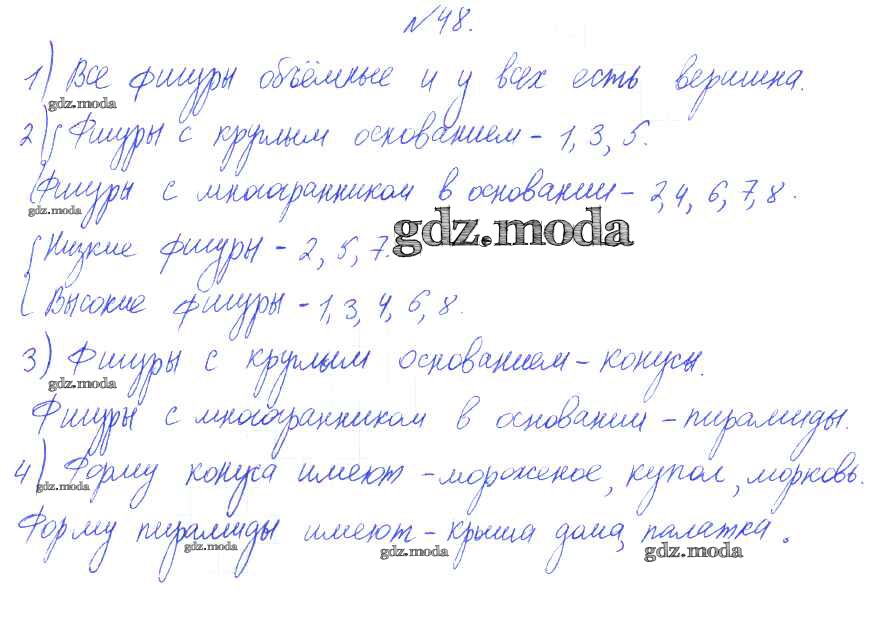 №48.
1) Все фигуры объёмные и у всех есть вершина.
gdz.moda
2) Фигуры с круглым основанием - 1, 3, 5.
Фигуры с многогранником в основании - 2, 4, 6, 7, 8.
gdz.moda
gdz.moda
Низкие фигуры - 2, 5, 7.
Высокие фигуры - 1, 3, 4, 6, 8.
3) Фигуры с круглым основанием - конусы.
gdz.moda
Фигуры с многогранником в основании - пирамиды.
4) Форму конуса имеют - мороженое, купол, морковь.
gdz.moda
Форму пирамиды имеют - крыша дома, палатка.
gdz.moda
gdz.moda
gdz.moda